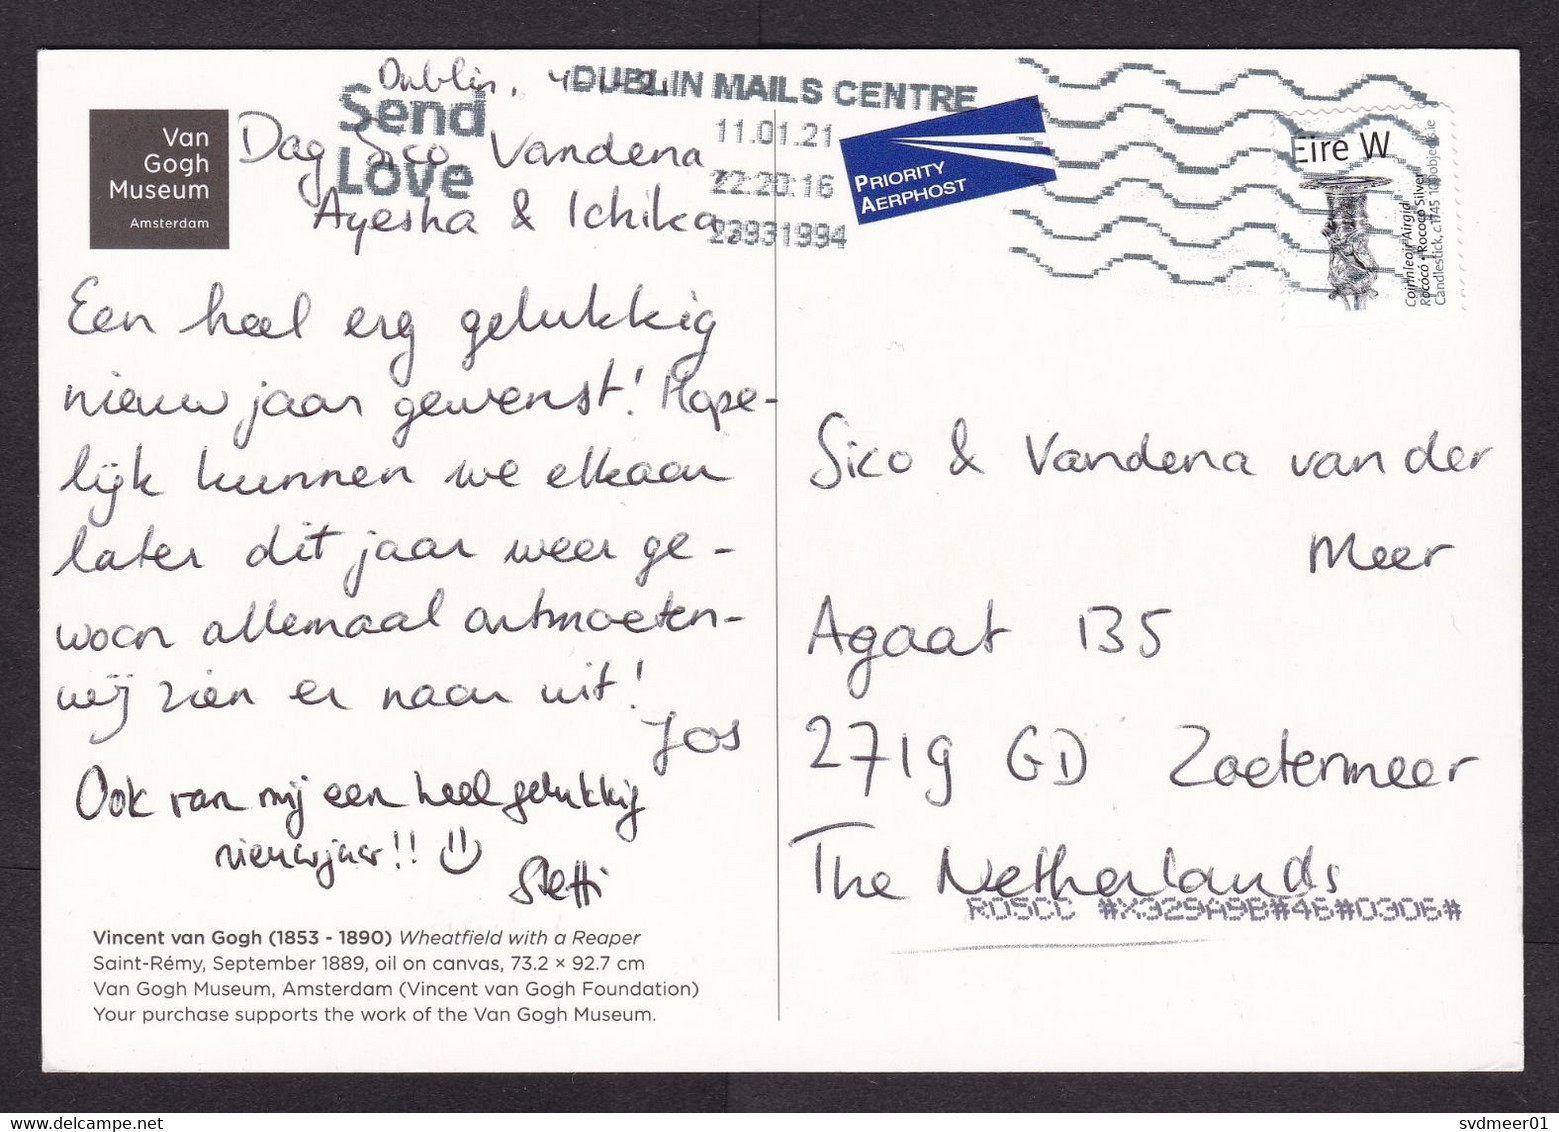 Dublin,
DUBLIN MAILS CENTRE
Send
Love
11.01.21
22:20:16
23931994
PRIORITY
AERPHOST
Éire W
Coinnleoir Airgid
Rococó • Rococo Silver
Candlestick, c1745
Van
Gogh
Museum
Amsterdam
Dag Sico Vandena
Ayesha & Ichika,
Een heel erg gelukkig
nieuw jaar gewenst! Hope-
lijk kunnen we elkaar
later dit jaar weer ge-
woon allemaal ontmoeten-
wij zien er naar uit!
Jos
Ook van mij een heel gelukkig
nieuwjaar!!
Steffi
Vincent van Gogh (1853 - 1890) Wheatfield with a Reaper
Saint-Rémy, September 1889, oil on canvas, 73.2 × 92.7 cm
Van Gogh Museum, Amsterdam (Vincent van Gogh Foundation)
Your purchase supports the work of the Van Gogh Museum.
Sico & Vandena van der
Meer
Agaat 135
2719 GD Zoetermeer
The Netherlands
RDSCC #X929A9B#46#D3D6#
svdmeer01